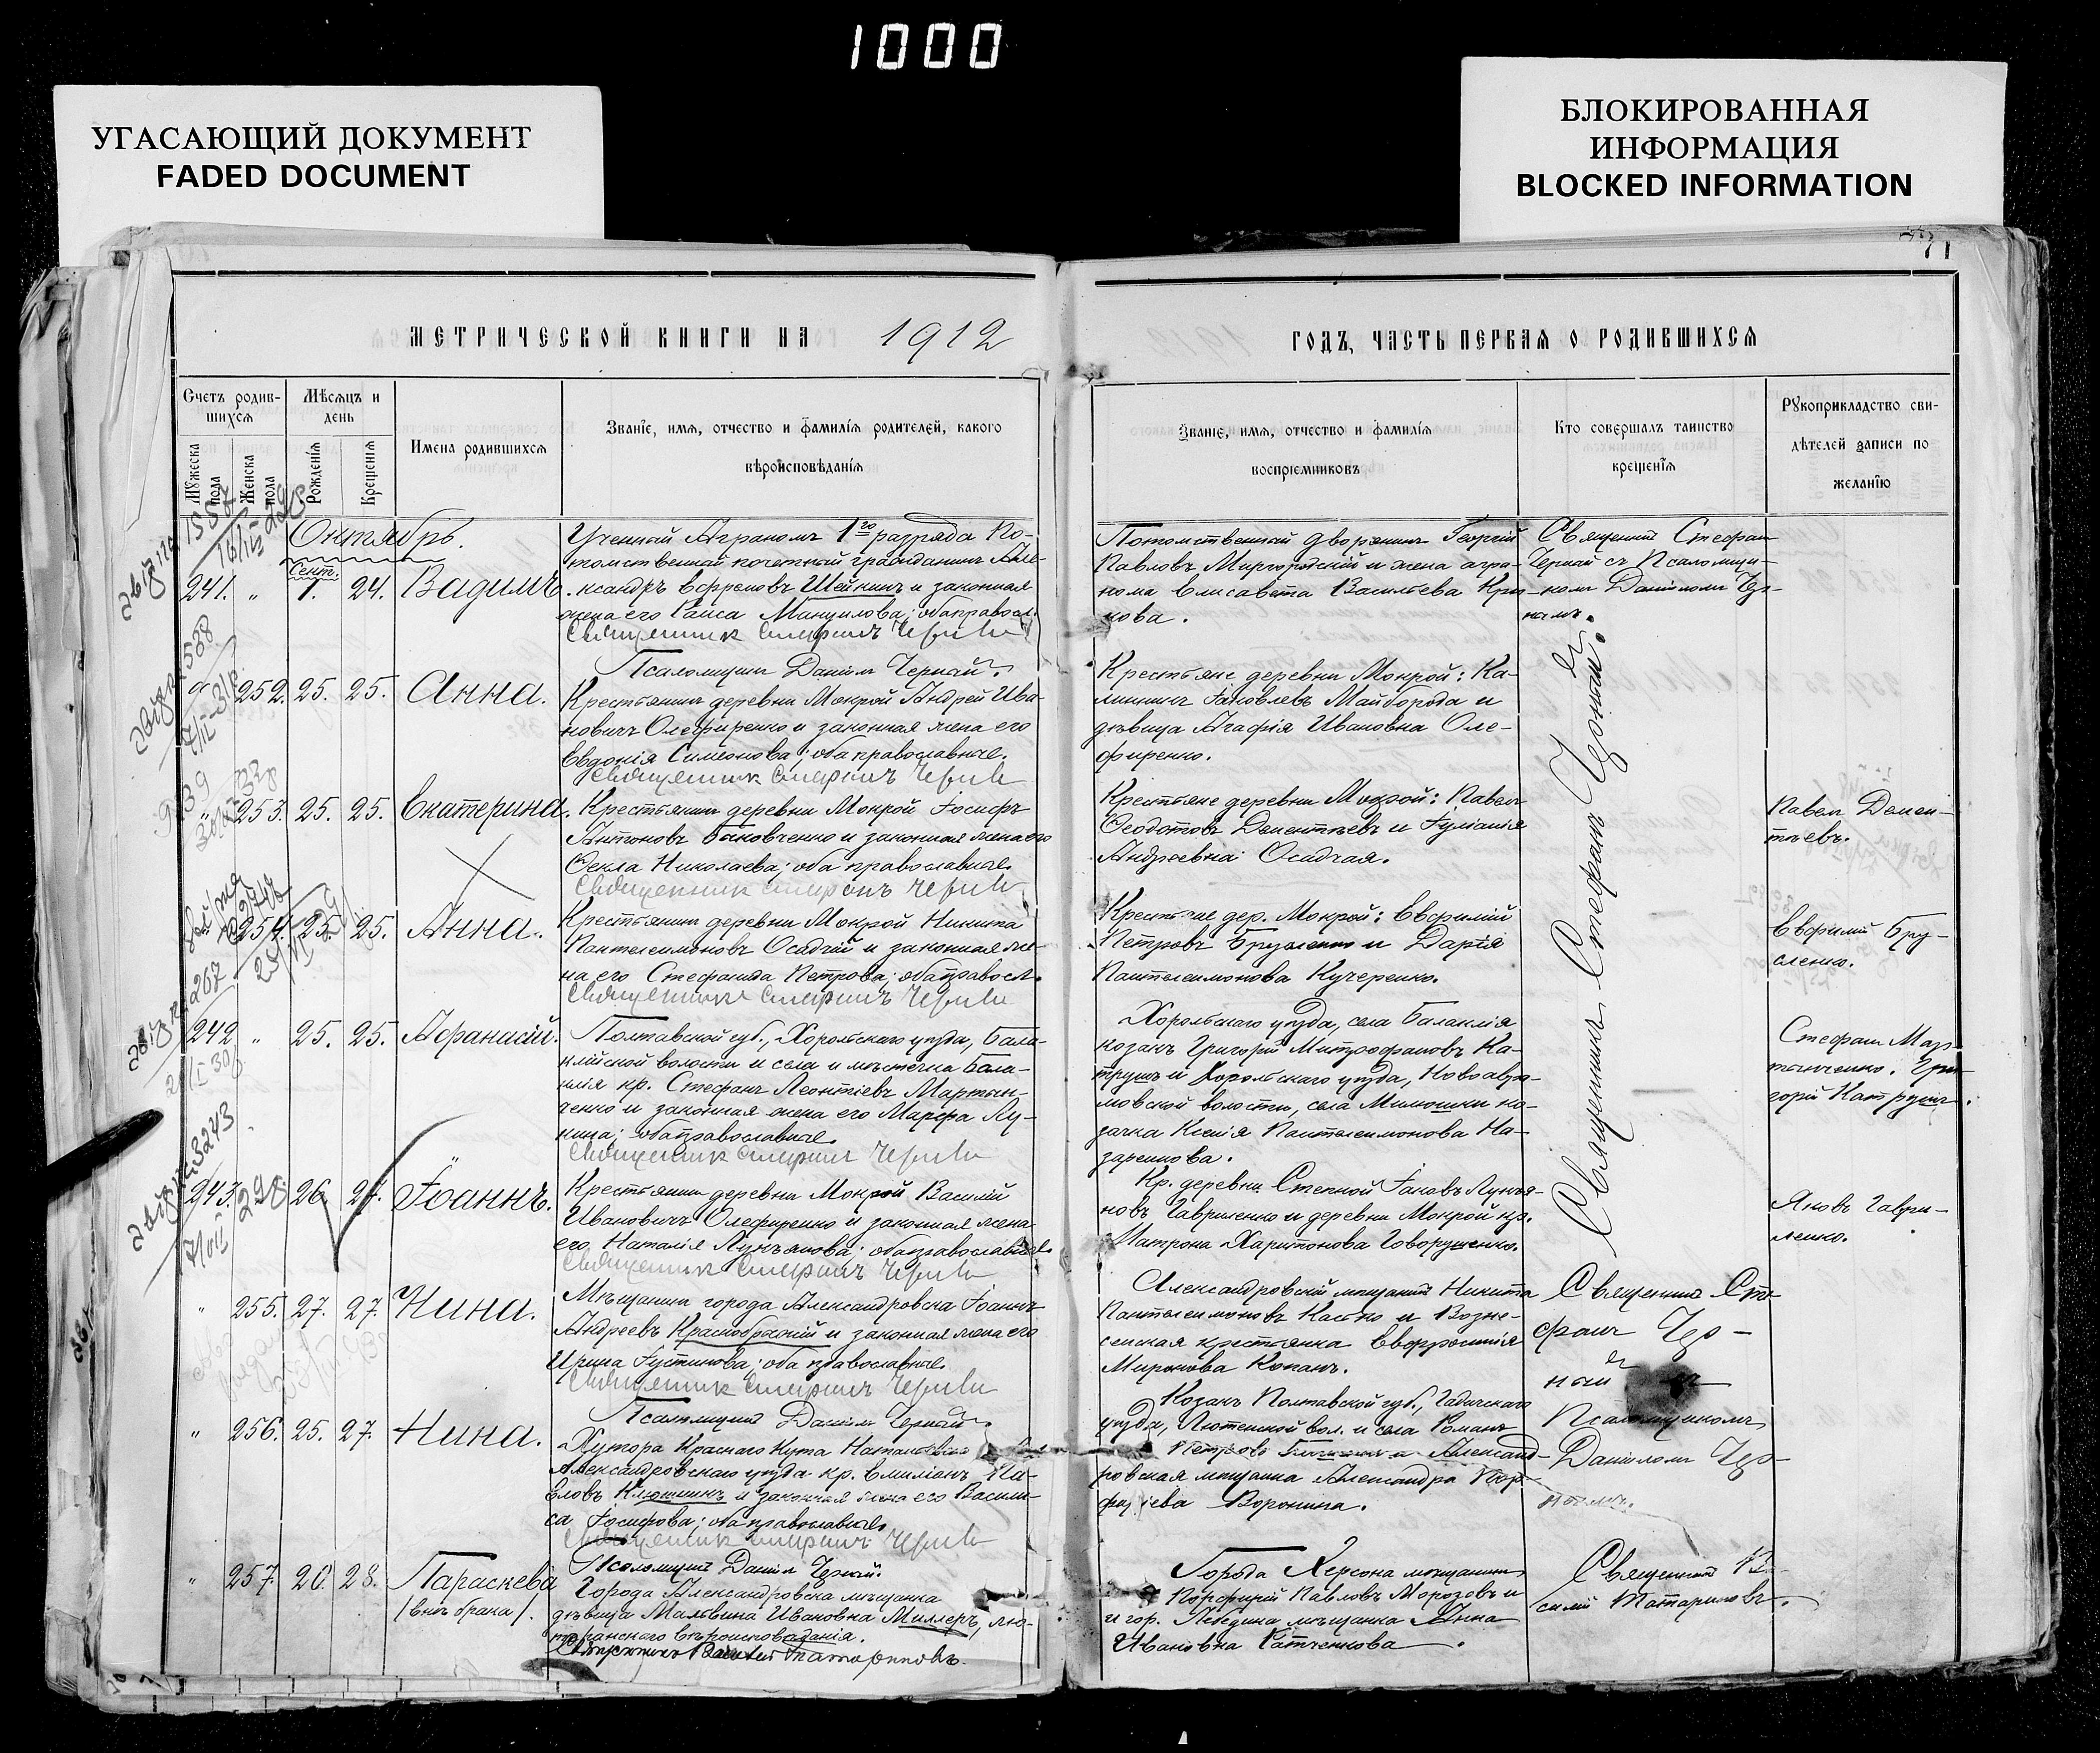 1000
УГАСАЮЩИЙ ДОКУМЕНТ
FADED DOCUMENT
БЛОКИРОВАННАЯ
ИНФОРМАЦИЯ
BLOCKED INFORMATION
71
МЕТРИЧЕСКОЙ КНИГИ НА 1912
ГОДЪ, ЧАСТЬ ПЕРВАЯ О РОДИВШИХСЯ
Счетъ родив-
шихся
Мужеска
пола
Женска
пола
Мѣсяцъ и
день
Рожденія
Крещенія
Имена родившихся
Званіе, имя, отчество и фамилія родителей, какого
вѣроисповѣданія
Званіе, имя, отчество и фамилія
воспріемниковъ
Кто совершалъ таинство
крещенія
Рукоприкладство сви-
дѣтелей записи по
желанію
Октябрь.
Сент.
241. " 1. 24. Вадимъ.
Ученый Агрономъ 1го разряда По-
томственный почетный гражданинъ Але-
ксандръ Ефремовъ Шейкинъ и законная
жена его Раиса Мануилова; оба правосл.
Священник Стефанъ Черный
Псаломщикъ Даніилъ Черный.
Потомственный дворянинъ Георгій
Павловъ Миргородскій и жена агро-
нома Елисавета Васильева Крю-
кова.
Священникъ Стефанъ
Черный съ Псаломщи-
комъ Даніиломъ Чер-
нымъ.
" 252. 25. 25. Анна.
Крестьянинъ деревни Мокрой Андрей Ива-
новичъ Олефиренко и законная жена его
Евдокія Симеонова; оба православные.
Священник Стефанъ Черный
Крестьяне деревни Мокрой: Ка-
линникъ Іаковлевъ Майборода и
дѣвица Агафія Ивановна Оле-
фиренко.
Священникъ Стефанъ Черный.
" 253. 25. 25. Екатерина.
Крестьянинъ деревни Мокрой Іосифъ
Антоновъ Яковченко и законная жена его
Ѳекла Николаева; оба православные.
Священник Стефанъ Черный
Крестьяне деревни Мокрой: Павелъ
Ѳеодотовъ Дементьевъ и Іуліанія
Андреевна Осадчая.
Павел Демен-
тьевъ.
254. 25. 25. Анна.
Крестьянинъ деревни Мокрой Никита
Пантелеимоновъ Осадчій и законная же-
на его Стефанида Петрова; оба правосл.
Священник Стефанъ Черный
Крестьяне дер. Мокрой: Евфимій
Петровъ Брусленко и Дарія
Пантелеимонова Кучеренко.
Евфимій Бру-
сленко.
242 " 25. 25. Аѳанасій.
Полтавской губ., Хорольскаго уѣзда, Бала-
клійской волости и села и мѣстечка Бала-
клія кр. Стефанъ Леонтіевъ Мартын-
ченко и законная жена его Марфа Лу-
кина; оба православные.
Священник Стефанъ Черный
Хорольскаго уѣзда, села Балаклія
козакъ Григорій Митрофановъ Ка-
трушъ и Хорольскаго уѣзда, Новоавра-
мовской волости, села Милюшки ко-
зачка Ксенія Пантелеимонова На-
заренкова.
Стефанъ Мар-
тынченко. Гри-
горій Катрушъ.
243. " 26. 27. Іоаннъ.
Крестьянинъ деревни Мокрой Василій
Ивановичъ Олефиренко и законная жена
его Наталія Лукьянова; оба православные.
Священник Стефанъ Черный
Кр. деревни Степной Іаковъ Лукья-
новъ Гавриленко и деревни Мокрой кр.
Матрона Харитонова Говорущенко.
Яковъ Гаври-
ленко.
" 255. 27. 27. Нина.
Мѣщанинъ города Александровска Іоаннъ
Андреевъ Краснобрыжій и законная жена его
Ирина Іустинова; оба православные.
Священник Стефанъ Черный
Псаломщикъ Даніилъ Черный.
Александровскій мѣщанинъ Никита
Пантелеимоновъ Костко и Возне-
сенская крестьянка Евфросинія
Миронова Копанъ.
Священникъ Сте-
фанъ Чер-
ный
Псаломщикомъ
Даніиломъ Чер-
нымъ.
" 256. 25. 27. Нина.
Хутора Краснаго Кута
Александровскаго уѣзда кр. Емиліанъ Па-
вловъ Клюшникъ и законная жена его Васили-
са Іосифова; оба православные.
Священник Стефанъ Черный
Псаломщикъ Даніилъ Черный.
Козакъ Полтавской губ., Гадячскаго
уѣзда, Лютенской вол. и села Романъ
Петровъ и Александ-
ровская мѣщанка Александра Пор-
фирiева Воронина.
" 257. 26. 28. Параскева
/внѣ брака/.
Города Александровска мѣщанка
дѣвица Мальвина Ивановна Миллеръ, лю-
теранскаго вѣроисповѣданія.
Священникъ Василій Татариновъ.
Города Херсона мѣщанинъ
Порфирій Павловъ Морозовъ и
гор. Лебедина мѣщанка Анна
Ивановна Гатченкова.
Священникъ Ва-
силій Татариновъ.